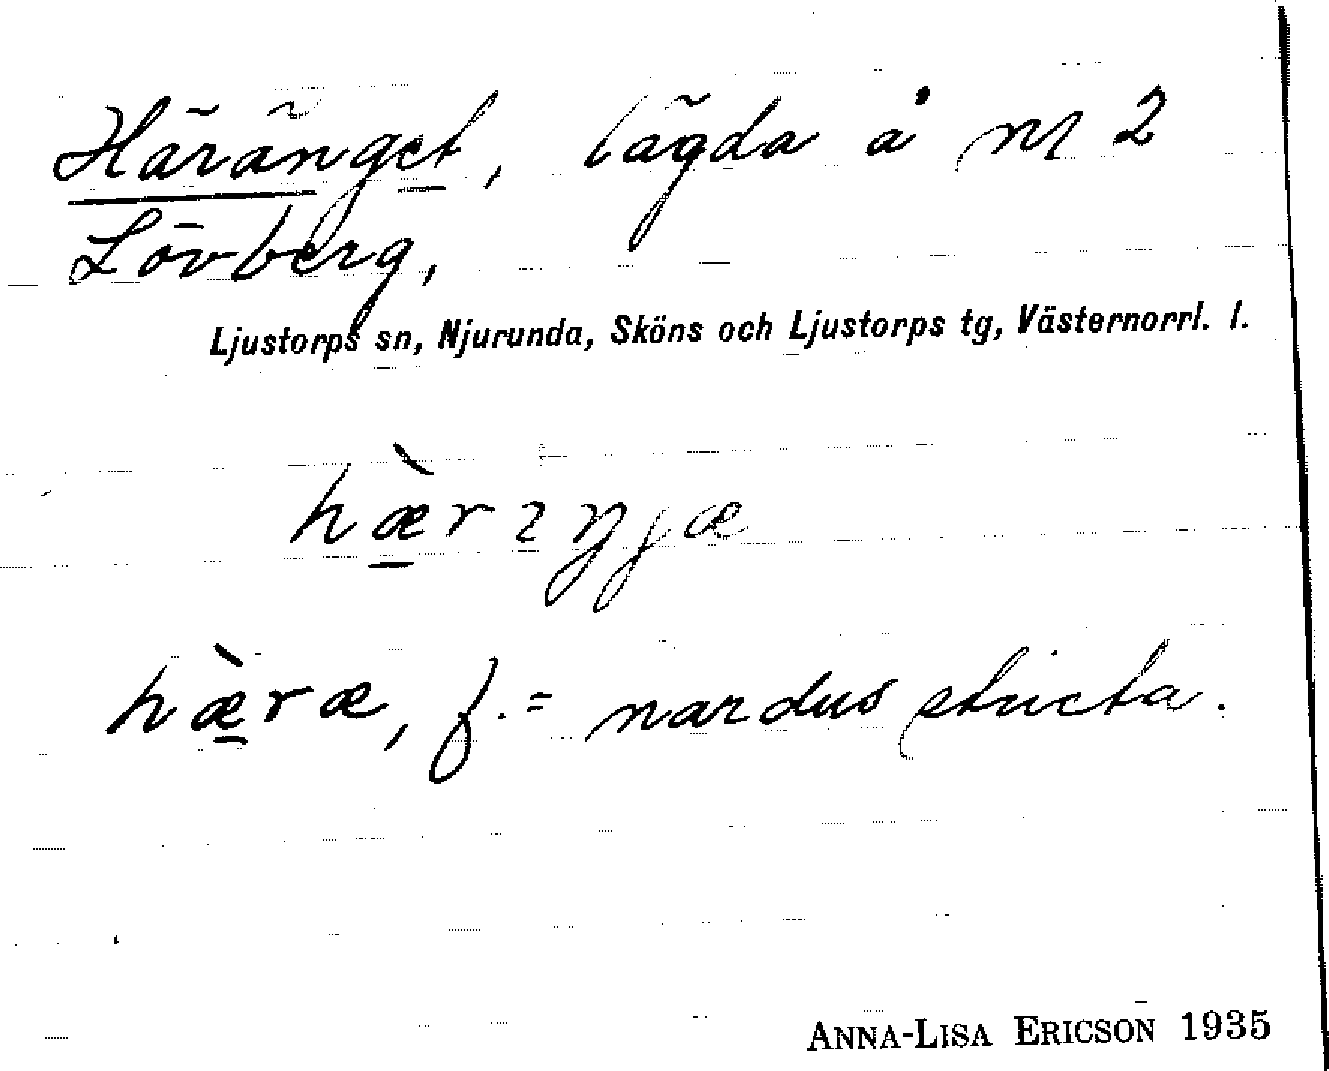 Häränget, lägda å nr 2
Lövberg,
Ljustorps sn, Njurunda, Sköns och Ljustorps tg, Västernorrl. l.
hæ̀rɿŋjæ
hæ̀ræ, f. = nardus stricta.
ANNA-LISA ERICSON 1935